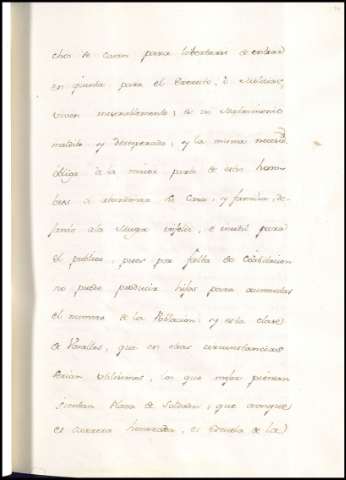 chos se casan para libertarse de entrar
en quinta para el Exercito, o Milicias,
viven miserablemente; es un matrimonio
maldito y desesperado, y la misma necesid.ᵈ
obliga a la mayor parte de estos hom-
bres a abandonar su Casa, y familia, de-
jando a la Muger infeliz, e inutil para
el publico, pues por falta de
no puede producir hijos para aumentar
el numero de la Poblacion: y esta clase
de Vasallos, que en otras circunstancias
serian utilisimos, los que mejor piensan
sientan Plaza de Soldados, que aunque
es carrera honrrada, es Escuela de la